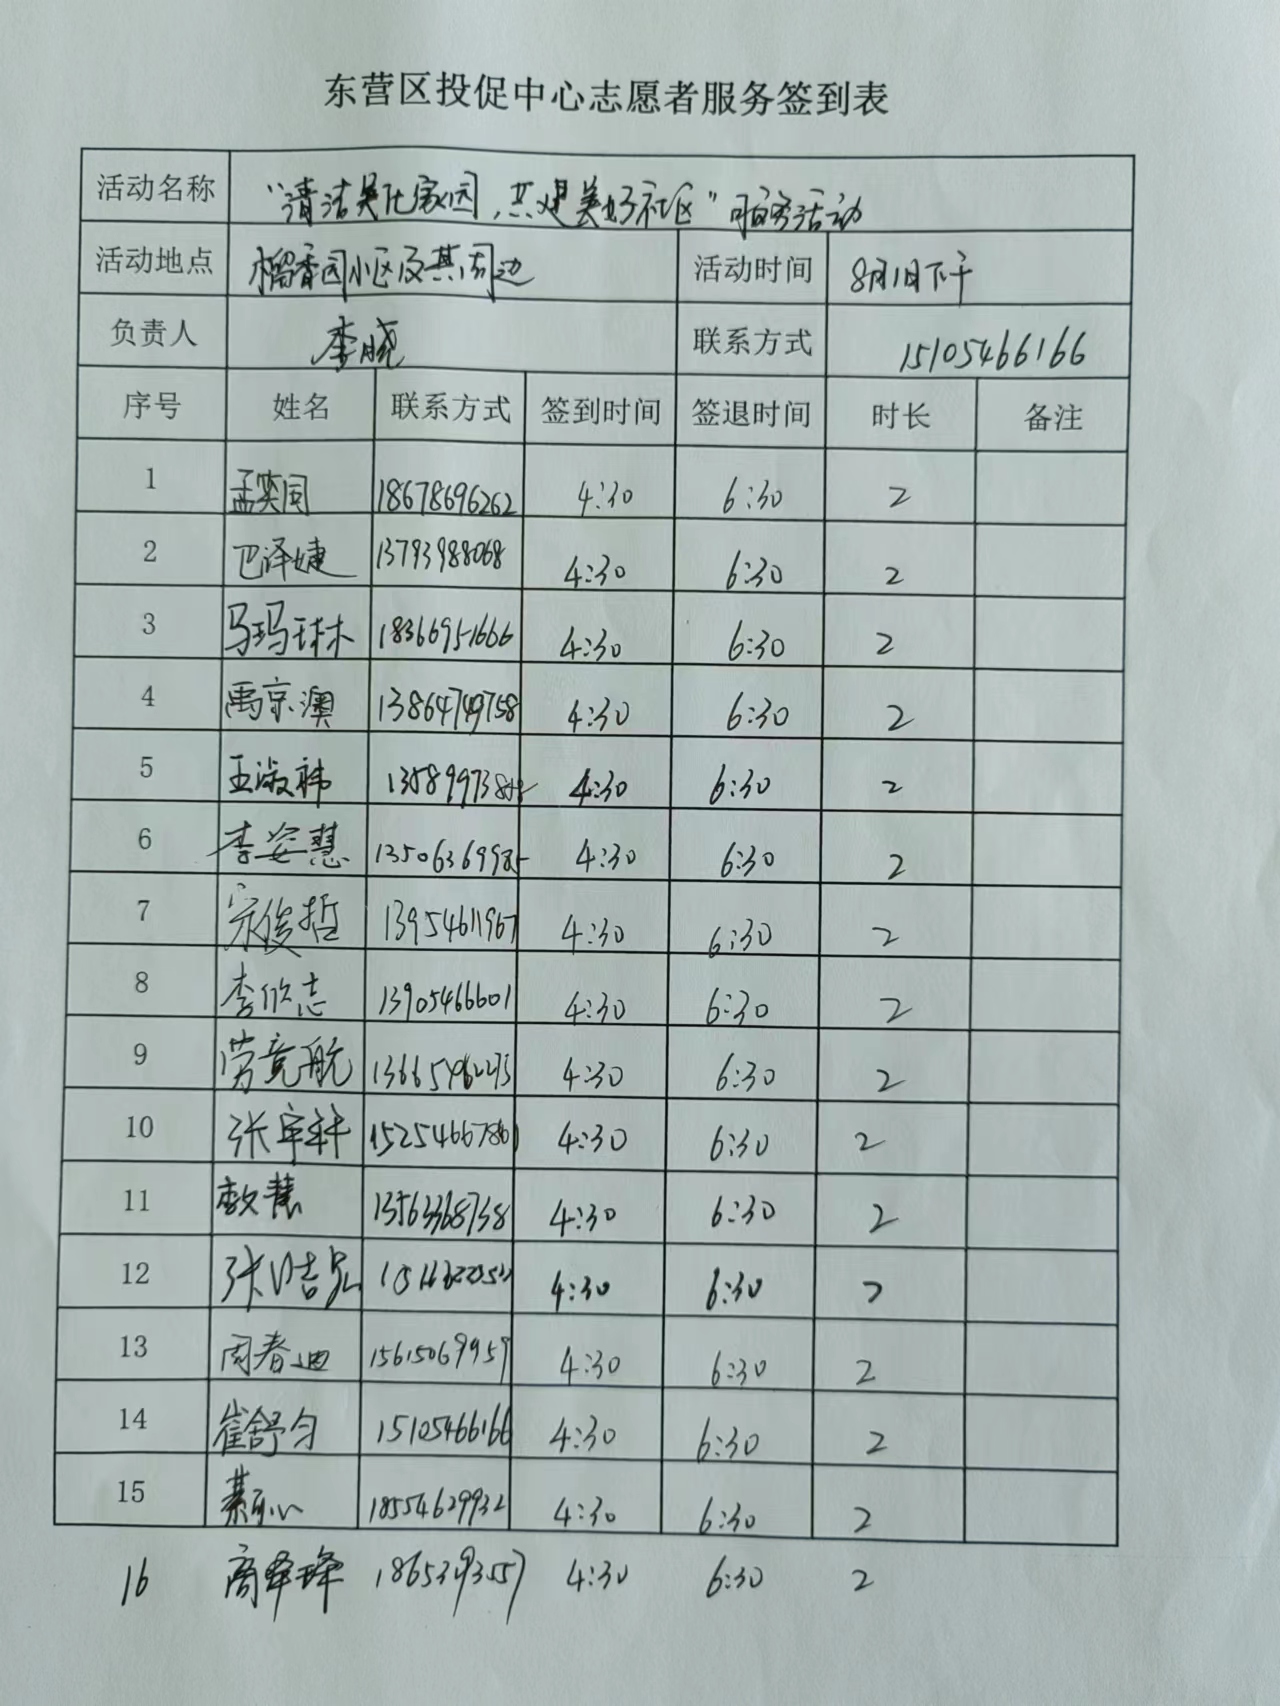 东营区投促中心志愿者服务签到表
活动名称 "清洁吴氏家园，共建美好社区"志愿活动
活动地点 榴香园小区及其周边 活动时间 8月1日下午
负责人 李晓 联系方式 15105466166
序号 姓名 联系方式 签到时间 签退时间 时长 备注
1 孟笑同 18678696262 4:30 6:30 2
2 巴泽婕 13793988068 4:30 6:30 2
3 马玛琳 18366951666 4:30 6:30 2
4 禹京澳 13864749758 4:30 6:30 2
5 王淑祎 4:30 6:30 2
6 李姿慧 13506369985 4:30 6:30 2
7 宋俊哲 13954611967 4:30 6:30 2
8 李欣志 13905466601 4:30 6:30 2
9 劳竟航 4:30 6:30 2
10 张宇轩 15254667861 4:30 6:30 2
11 慧 13563368738 4:30 6:30 2
12 张 4:30 6:30 2
13 周春迪 15615069959 4:30 6:30 2
14 崔舒匀 15105466166 4:30 6:30 2
15 18554629932 4:30 6:30 2
16 商泽锋 18653493557 4:30 6:30 2